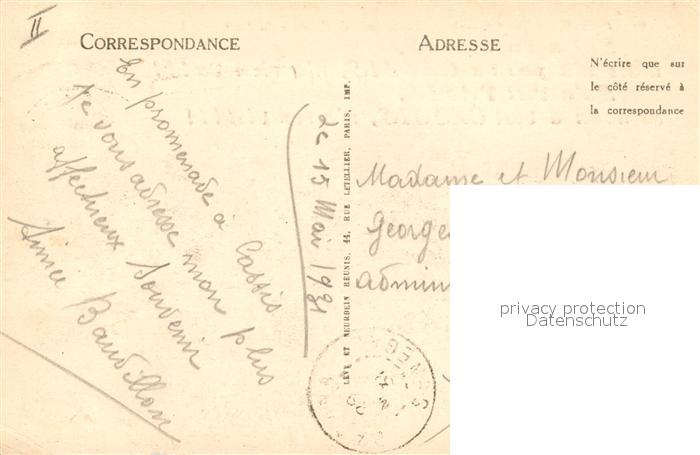 II
CORRESPONDANCE
ADRESSE
N'écrire que sur
le côté réservé à
la correspondance
En promenade à Cassis
Je vous adresse mon plus
affectueux Souvenir
Baudillon
Le 15 Mai 1931
LÉVY ET NEURDEIN RÉUNIS, 44, RUE LETELLIER, PARIS, IMP.
Madame et Monsieur
George
admin
privacy protection
Datenschutz